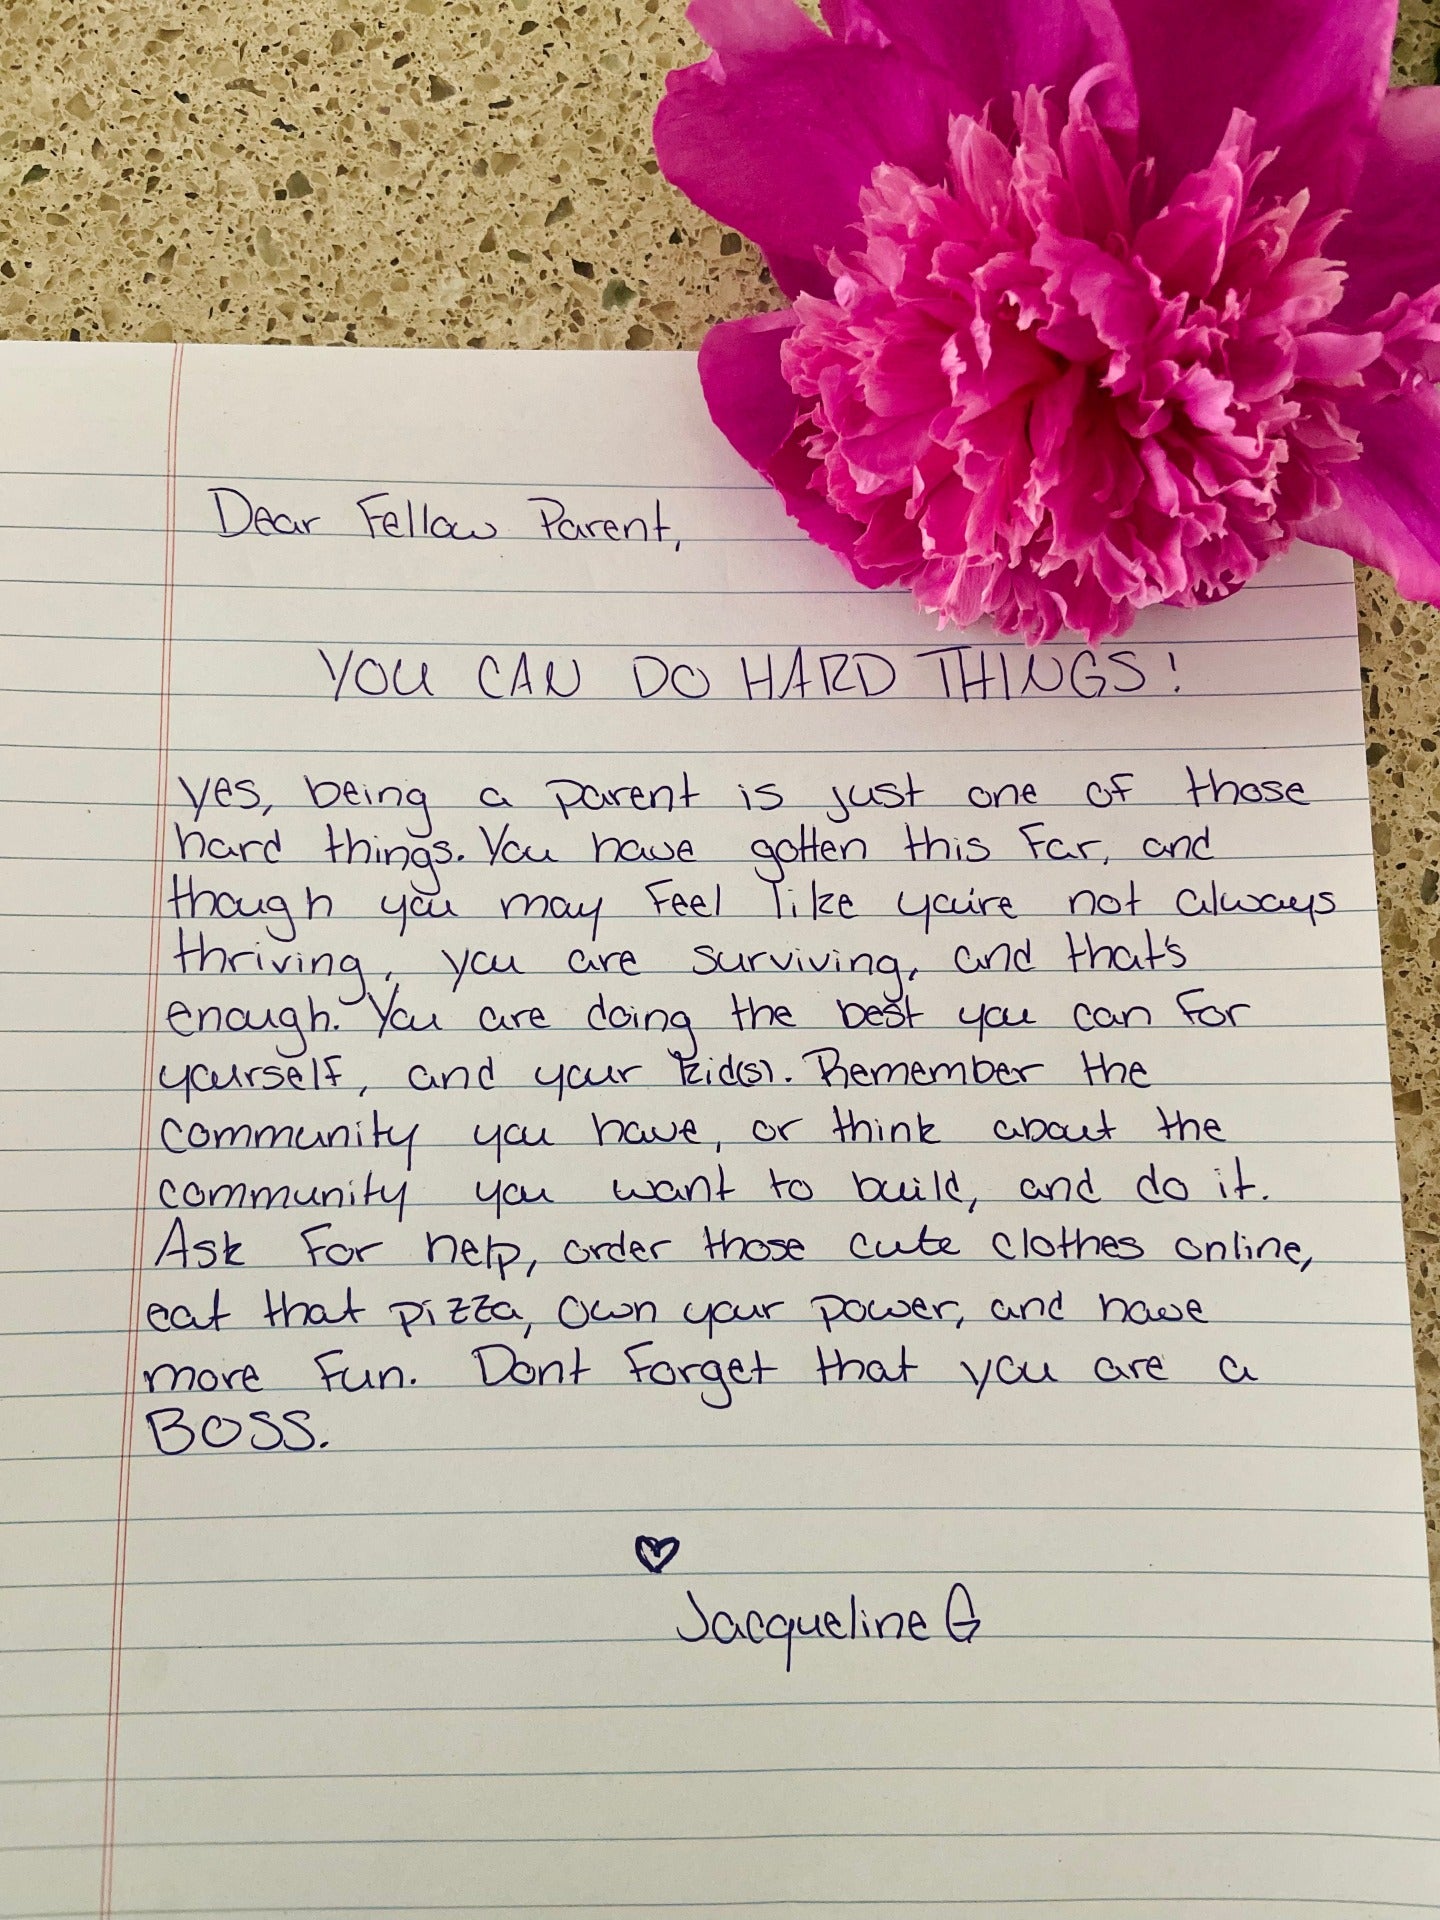 Dear Fellow Parent,
YOU CAN DO HARD THINGS!
Yes, being a parent is just one of those
hard things. You have gotten this far, and
though you may feel like you're not always
thriving, you are surviving, and that's
enough. You are doing the best you can for
yourself, and your kid(s). Remember the
community you have, or think about the
community you want to build, and do it.
Ask for help, order those cute clothes online,
eat that pizza, own your power, and have
more fun. Dont forget that you are a
BOSS.
♡
Jacqueline G